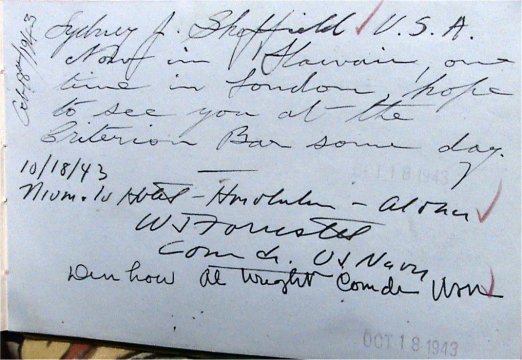 Oct. 18th/1943
Sydney J. Sheffield U.S.A.
Now in Hawaii, one
time in London, hope
to see you at the
Criterion Bar some day.
OCT 18 1943
10/18/43
Hotel - Honolulu - Aloha
WJ Forrestel
Comdr. US Navy
Al Wright Comdr USN
OCT 18 1943